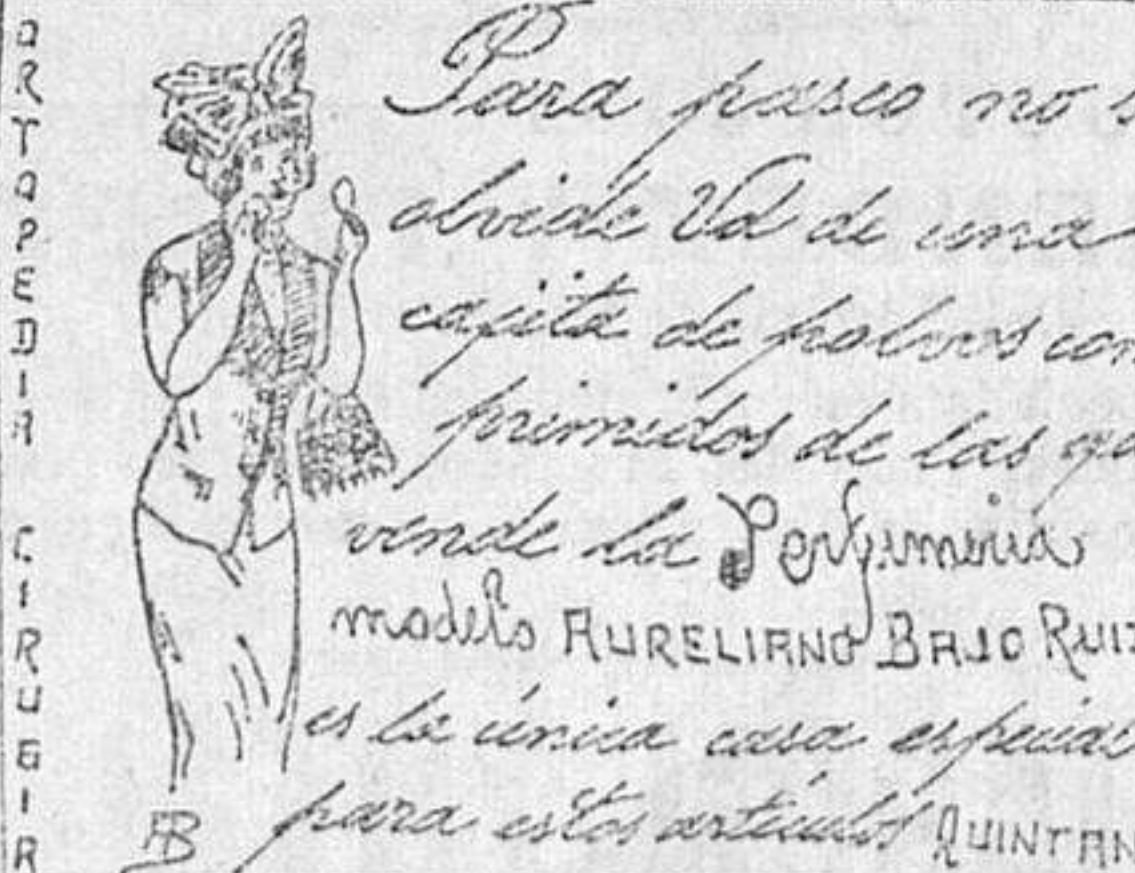 ORTOPEDIA CIRUGIA
Para paseo no s
olvide Vd de una
cajita de polvos com
primidos de las qu
vende la Perfumeria
modelo AURELIANO BAJO RUIZ
es la única casa especial
para estos artículos QUINTAN
AB